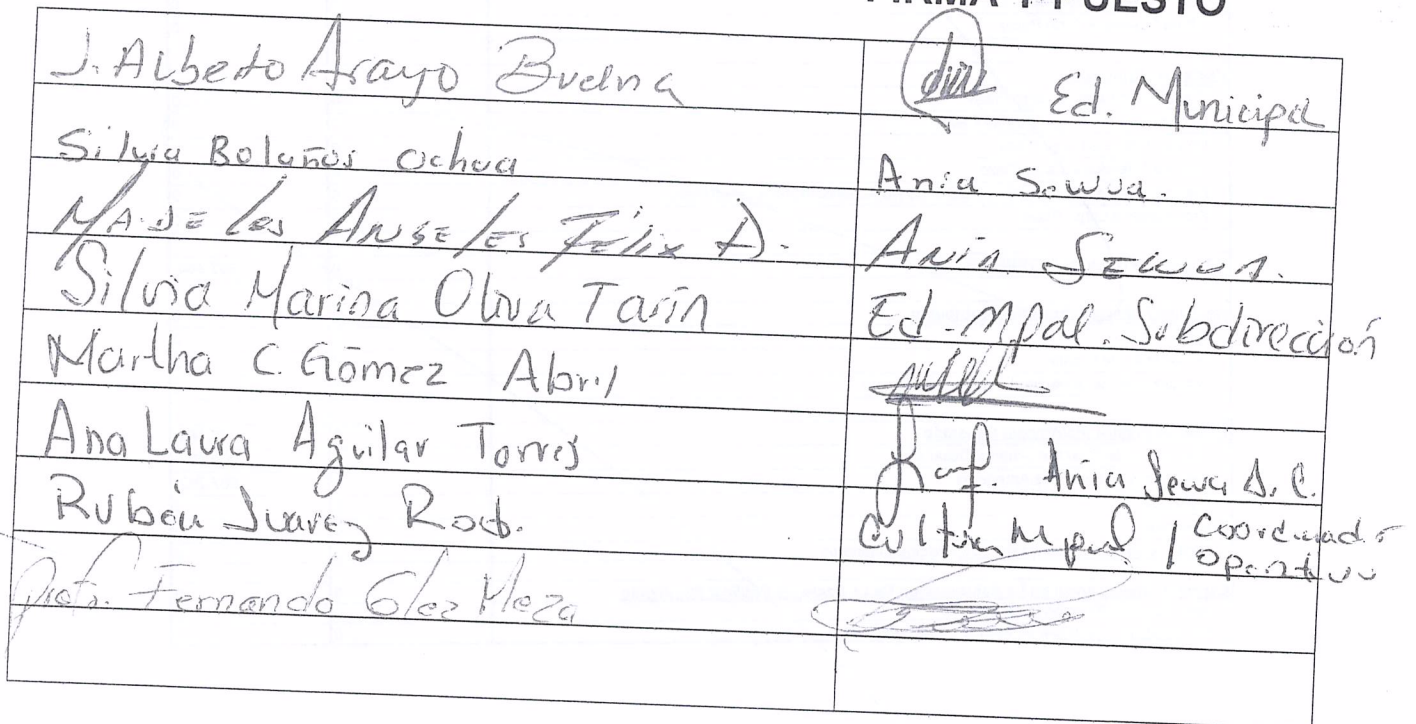 FIRMA Y PUESTO
J. Alberto Arayo Buelna Ed. Municipal
Silvia Bolaños Ochoa Ania Sewua.
Ma. de los Angeles Félix A. Ania Sewua.
Silvia Marina Oliva Tarín Ed. Mpal. Subdirección
Martha C. Gómez Abril
Ana Laura Aguilar Torres Ania Sewa A.C.
Rubén Juarez Rod. Cultura Mpal / Coordinador Operativo
Profr. Fernando Glez Meza